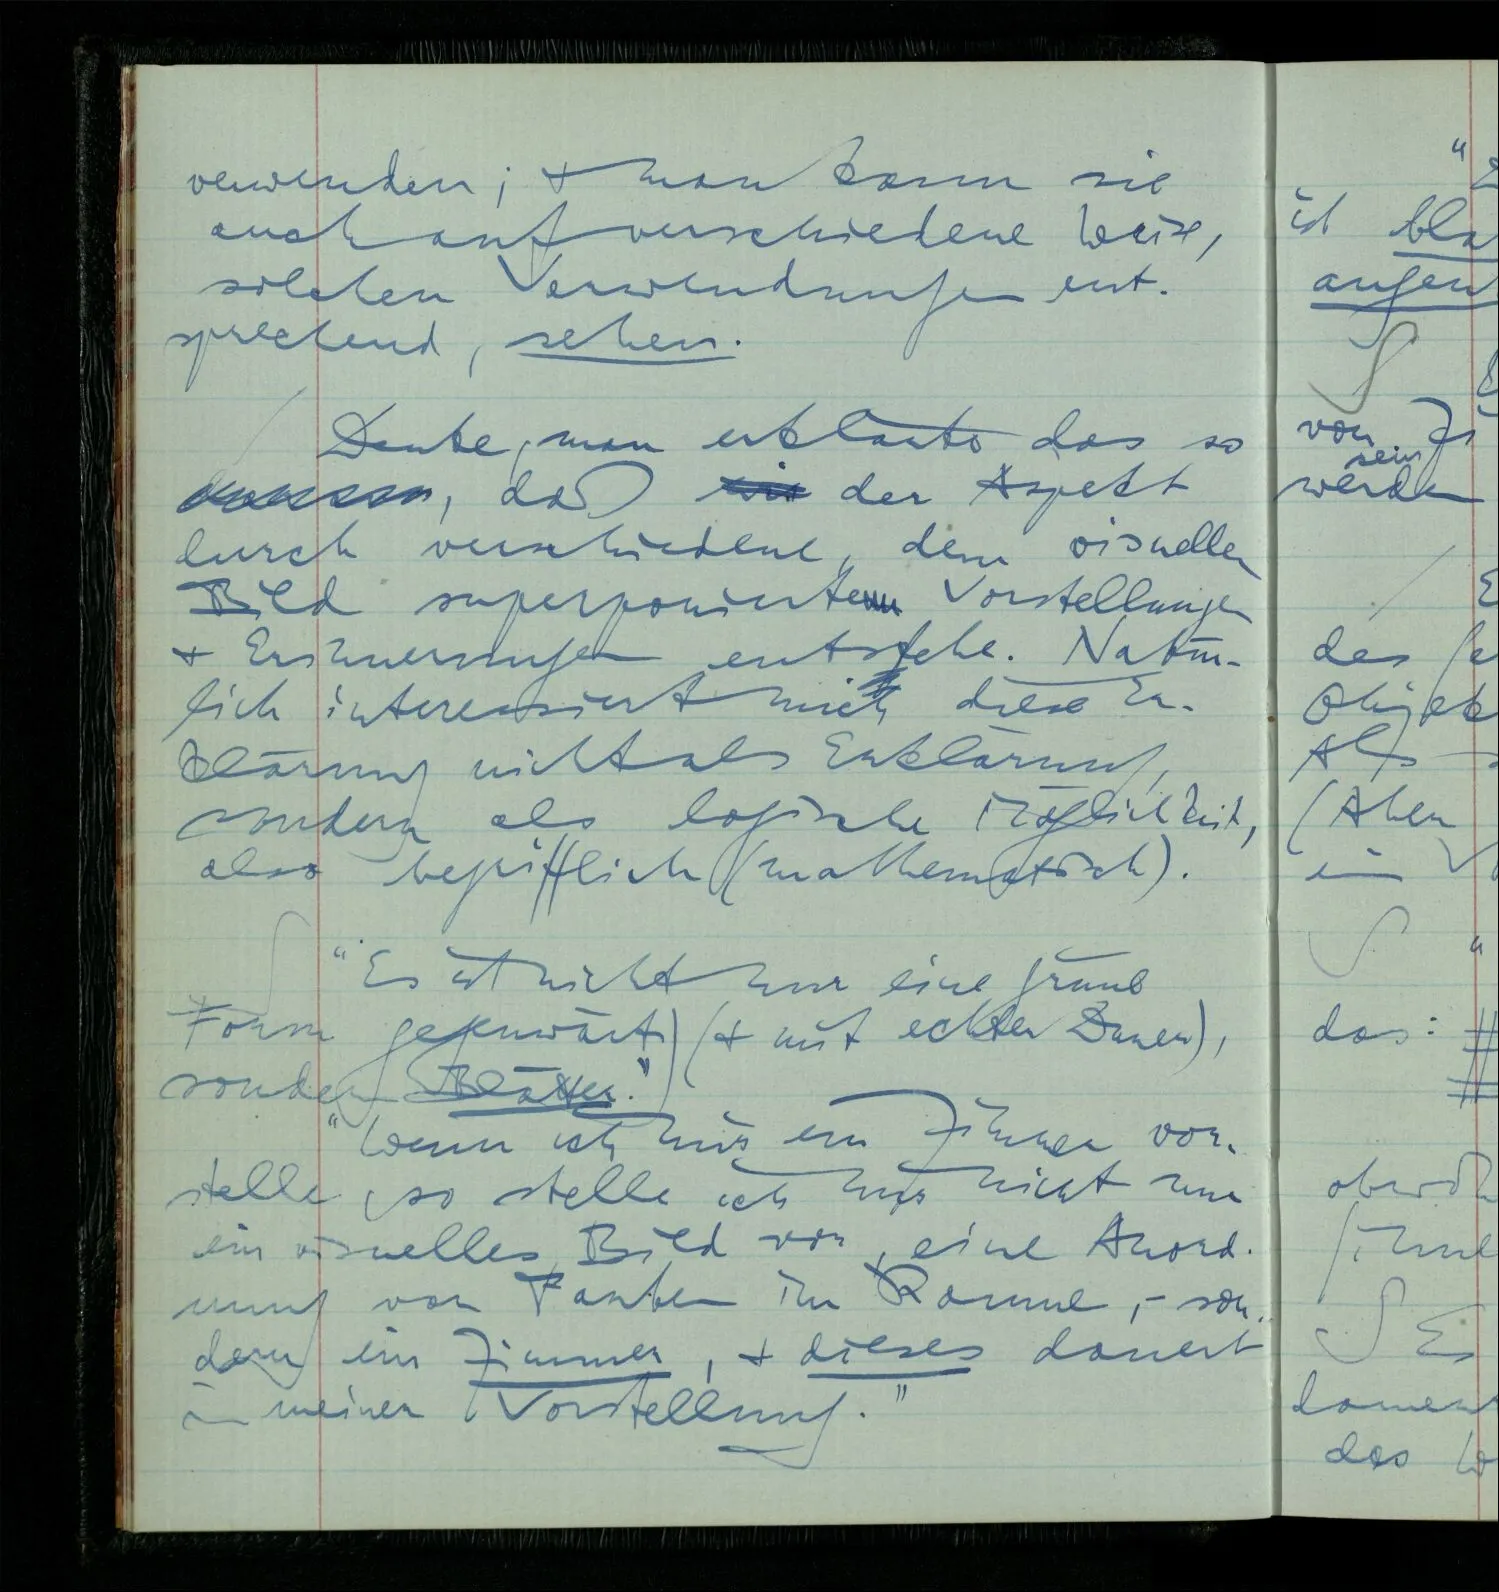 verwenden; + man kann sie
auch auf verschiedene Weise,
solchen Verwendungen ent-
sprechend, sehen.
Denke, man erklärte das so
, daß der Aspekt
durch verschiedene, dem visuellen
Bild superponierte Vorstellungen
+ Erinnerungen entstehe. Natür-
lich interessiert mich diese Er-
klärung nicht als Erklärung,
sondern als logische Möglichkeit,
also begrifflich (mathematisch).
"Es ist nicht nur eine grüne
Form gegenwärtig (+ mit echter Dauer),
sondern Blätter."
"Wenn ich mir ein Zimmer vor-
stelle, so stelle ich mir nicht nur
ein visuelles Bild vor, eine Anord-
nung von Farben im Raume, – son-
dern ein Zimmer, + dieses dauert
in meiner Vorstellung."
"
ist
von
sein
werden
des
Als
(Aber
ein
"
das:
des